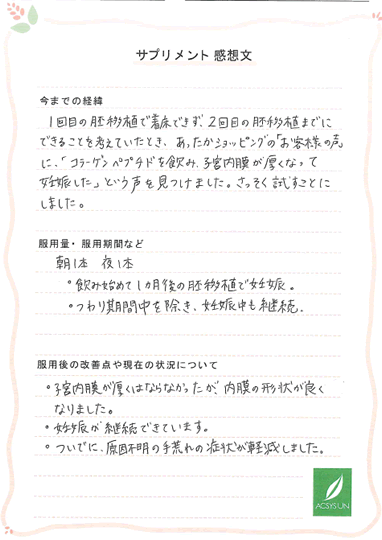 サプリメント 感想文
今までの経緯
1回目の胚移植で着床できず、2回目の胚移植までに
できることを考えていたとき、あったかショッピングの「お客様の声
に、「コラーゲンペプチドを飲み、子宮内膜が厚くなって
妊娠した」という声を見つけました。さっそく試すことに
しました。
服用量・服用期間など
朝1本 夜1本
・飲み始めて1カ月後の胚移植で妊娠。
・つわり期間中を除き、妊娠中も継続.
服用後の改善点や現在の状況について
・子宮内膜が厚くはならなかったが、内膜の形状が良く
なりました。
・妊娠が継続できています。
・ついでに、原因不明の手荒れの症状が軽減しました。
ACSYSIUN